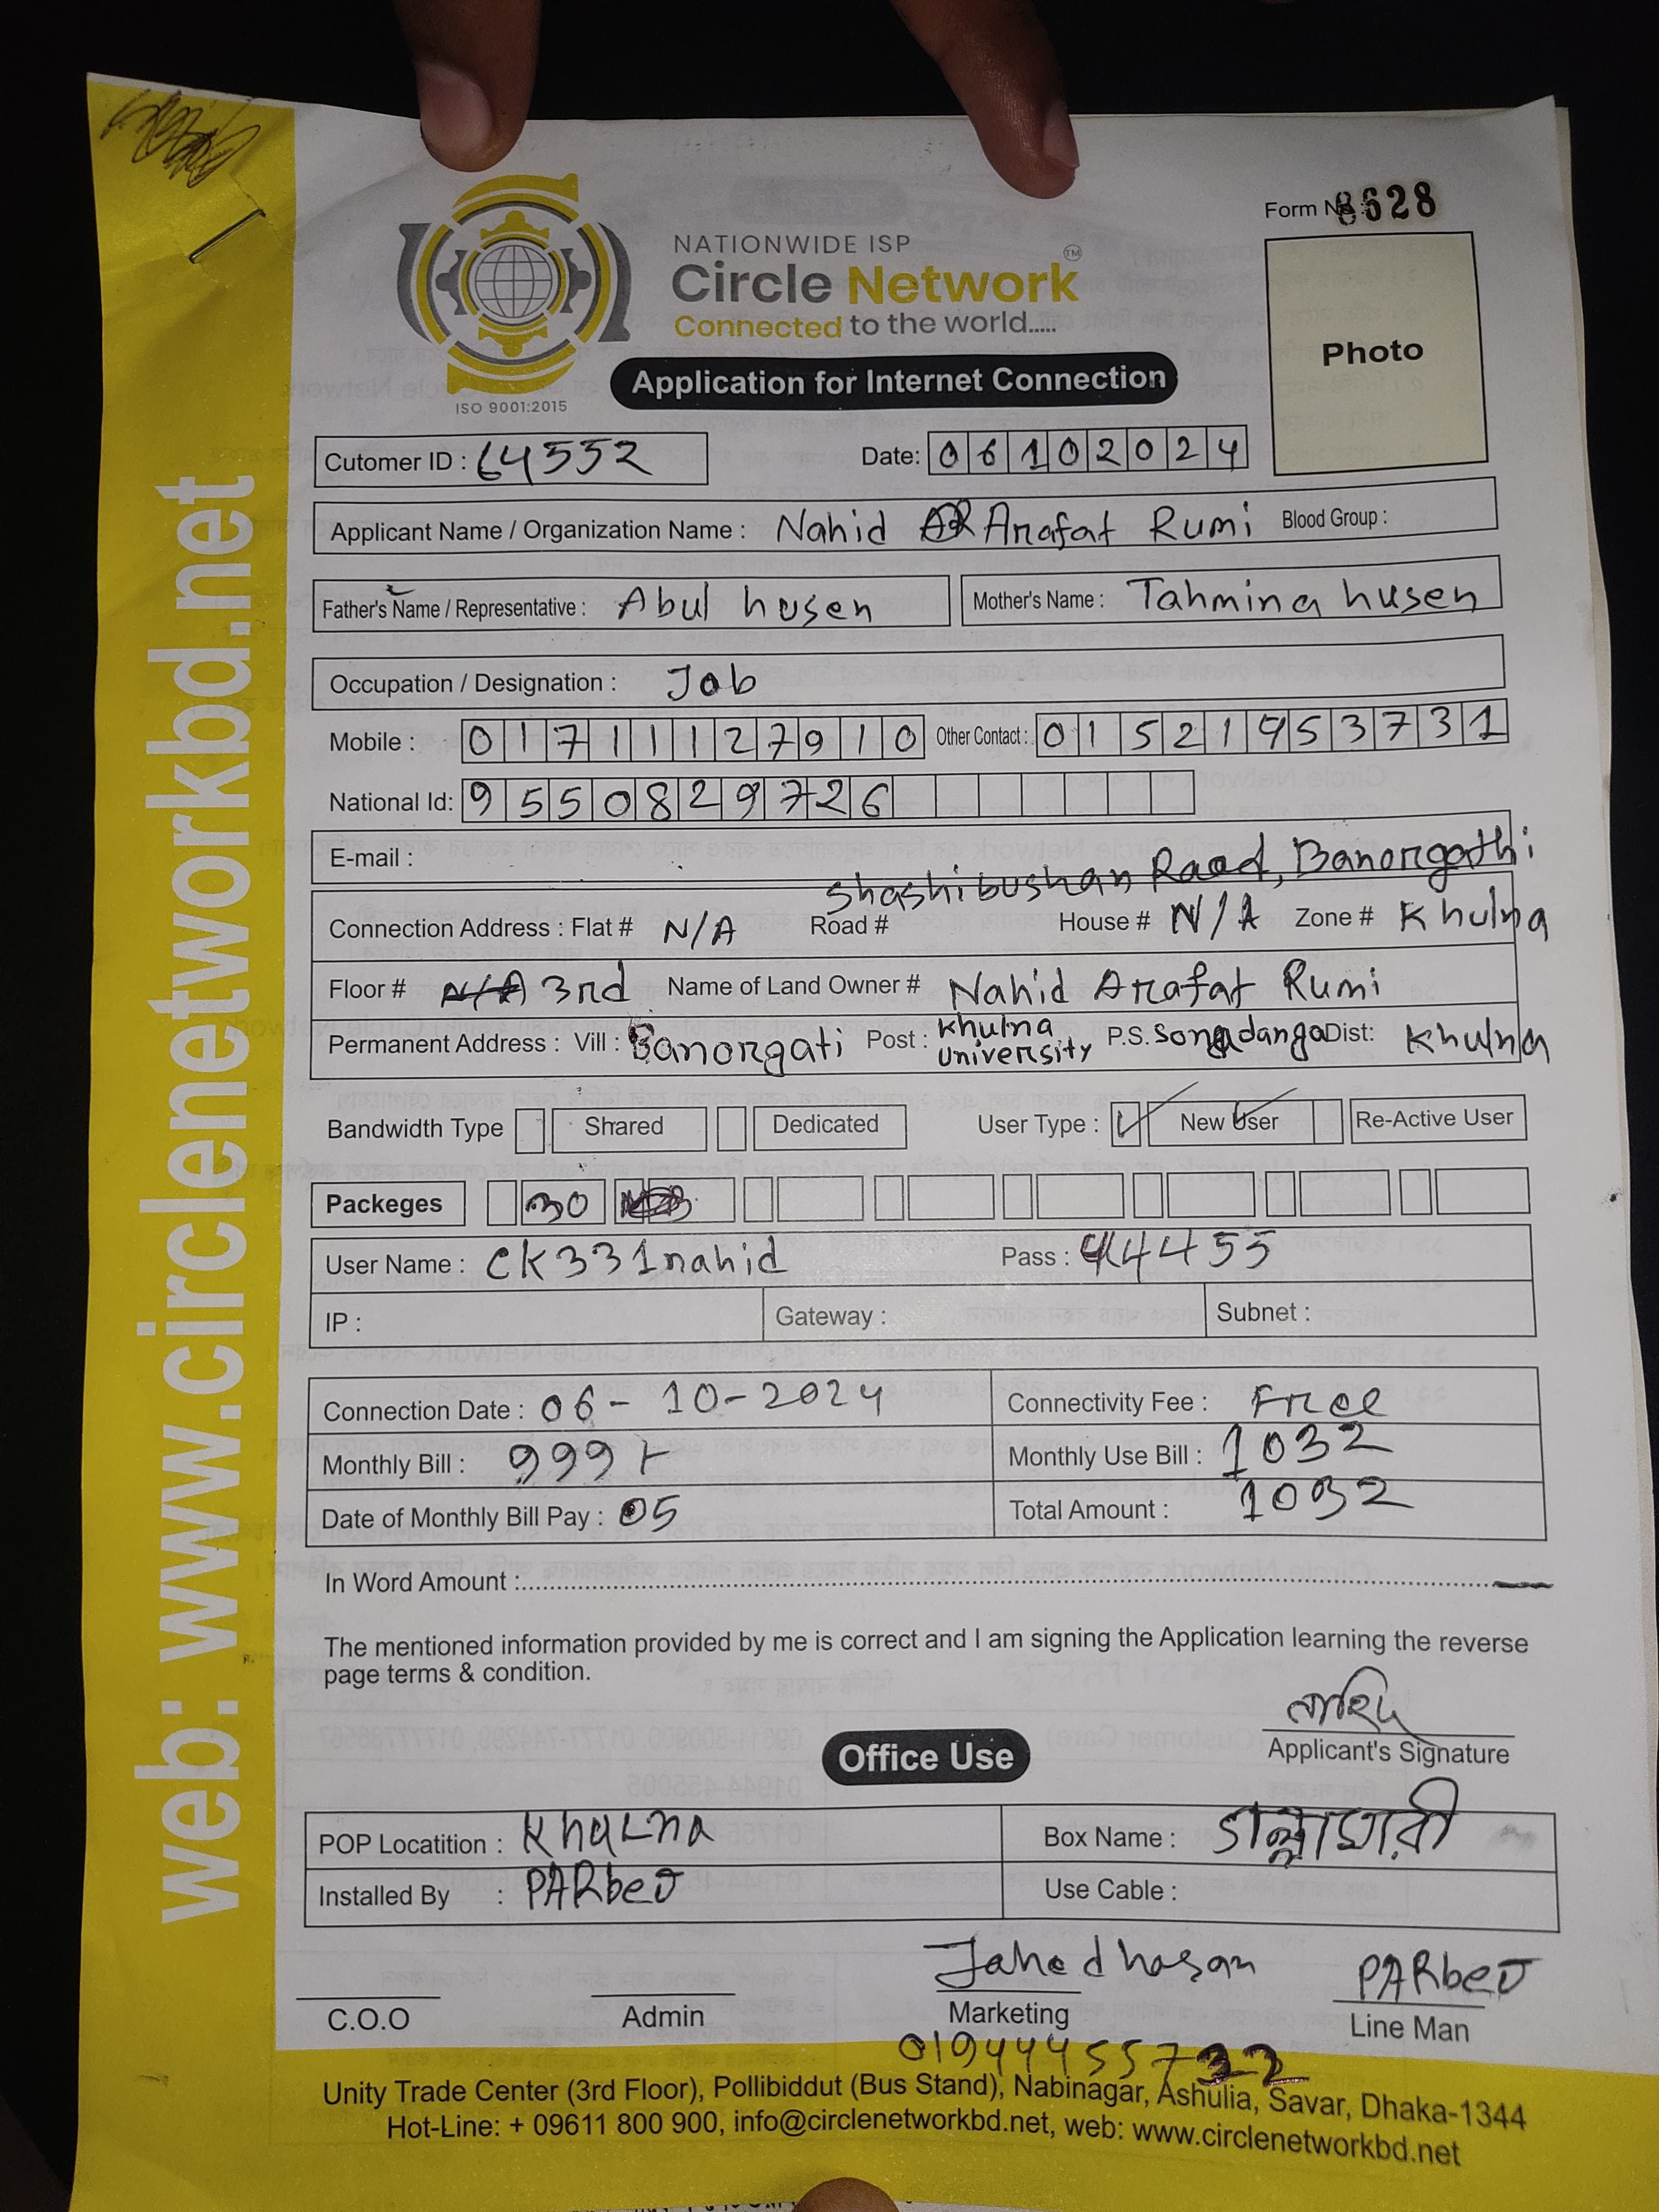 web: www.circlenetworkbd.net
Form No 8628
NATIONWIDE ISP
Circle Network TM
Connected to the world.....
ISO 9001:2015
Application for Internet Connection
Photo
Cutomer ID : 64552
Date: 06102024
Applicant Name / Organization Name : Nahid Arafat Rumi Blood Group :
Father's Name / Representative : Abul husen Mother's Name : Tahmina husen
Occupation / Designation : Job
Mobile : 01711127910 Other Contact : 01521453731
National Id: 9550829726
E-mail :
Shashibushan Raod, Banorgathi
Connection Address : Flat # N/A Road # House # N/A Zone # Khulna
Floor # N/A 3rd Name of Land Owner # Nahid Arafat Rumi
Permanent Address : Vill : Banorgati Post : Khulna University P.S. Songadanga Dist: Khulna
Bandwidth Type Shared Dedicated User Type : New User Re-Active User
Packeges 30
User Name : CK331nahid Pass : 44455
IP : Gateway : Subnet :
Connection Date : 06-10-2024 Connectivity Fee : Free
Monthly Bill : 999 Monthly Use Bill : 1032
Date of Monthly Bill Pay : 05 Total Amount : 1032
In Word Amount :
The mentioned information provided by me is correct and I am signing the Application learning the reverse
page terms & condition.
Applicant's Signature
Office Use
POP Locatition : Khulna Box Name :
Installed By : PARbeJ Use Cable :
Jahed hasan PARbeJ
C.O.O Admin Marketing Line Man
Unity Trade Center (3rd Floor), Pollibiddut (Bus Stand), Nabinagar, Ashulia, Savar, Dhaka-1344
Hot-Line: + 09611 800 900, info@circlenetworkbd.net, web: www.circlenetworkbd.net